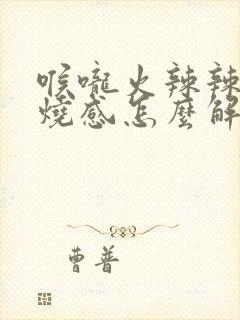 喉嚨火辣辣
燒感怎麼解
曹普